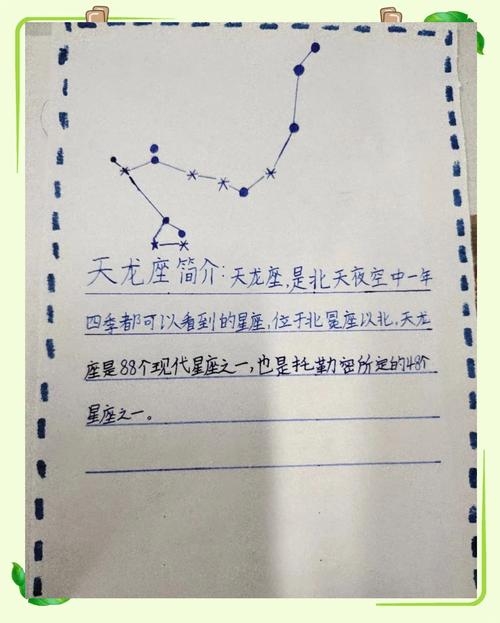 天龙座简介:天龙座,是北天夜空中一年
四季都可以看到的星座,位于北冕座以北,天龙
座是88个现代星座之一,也是托勒密所定的48个
星座之一。